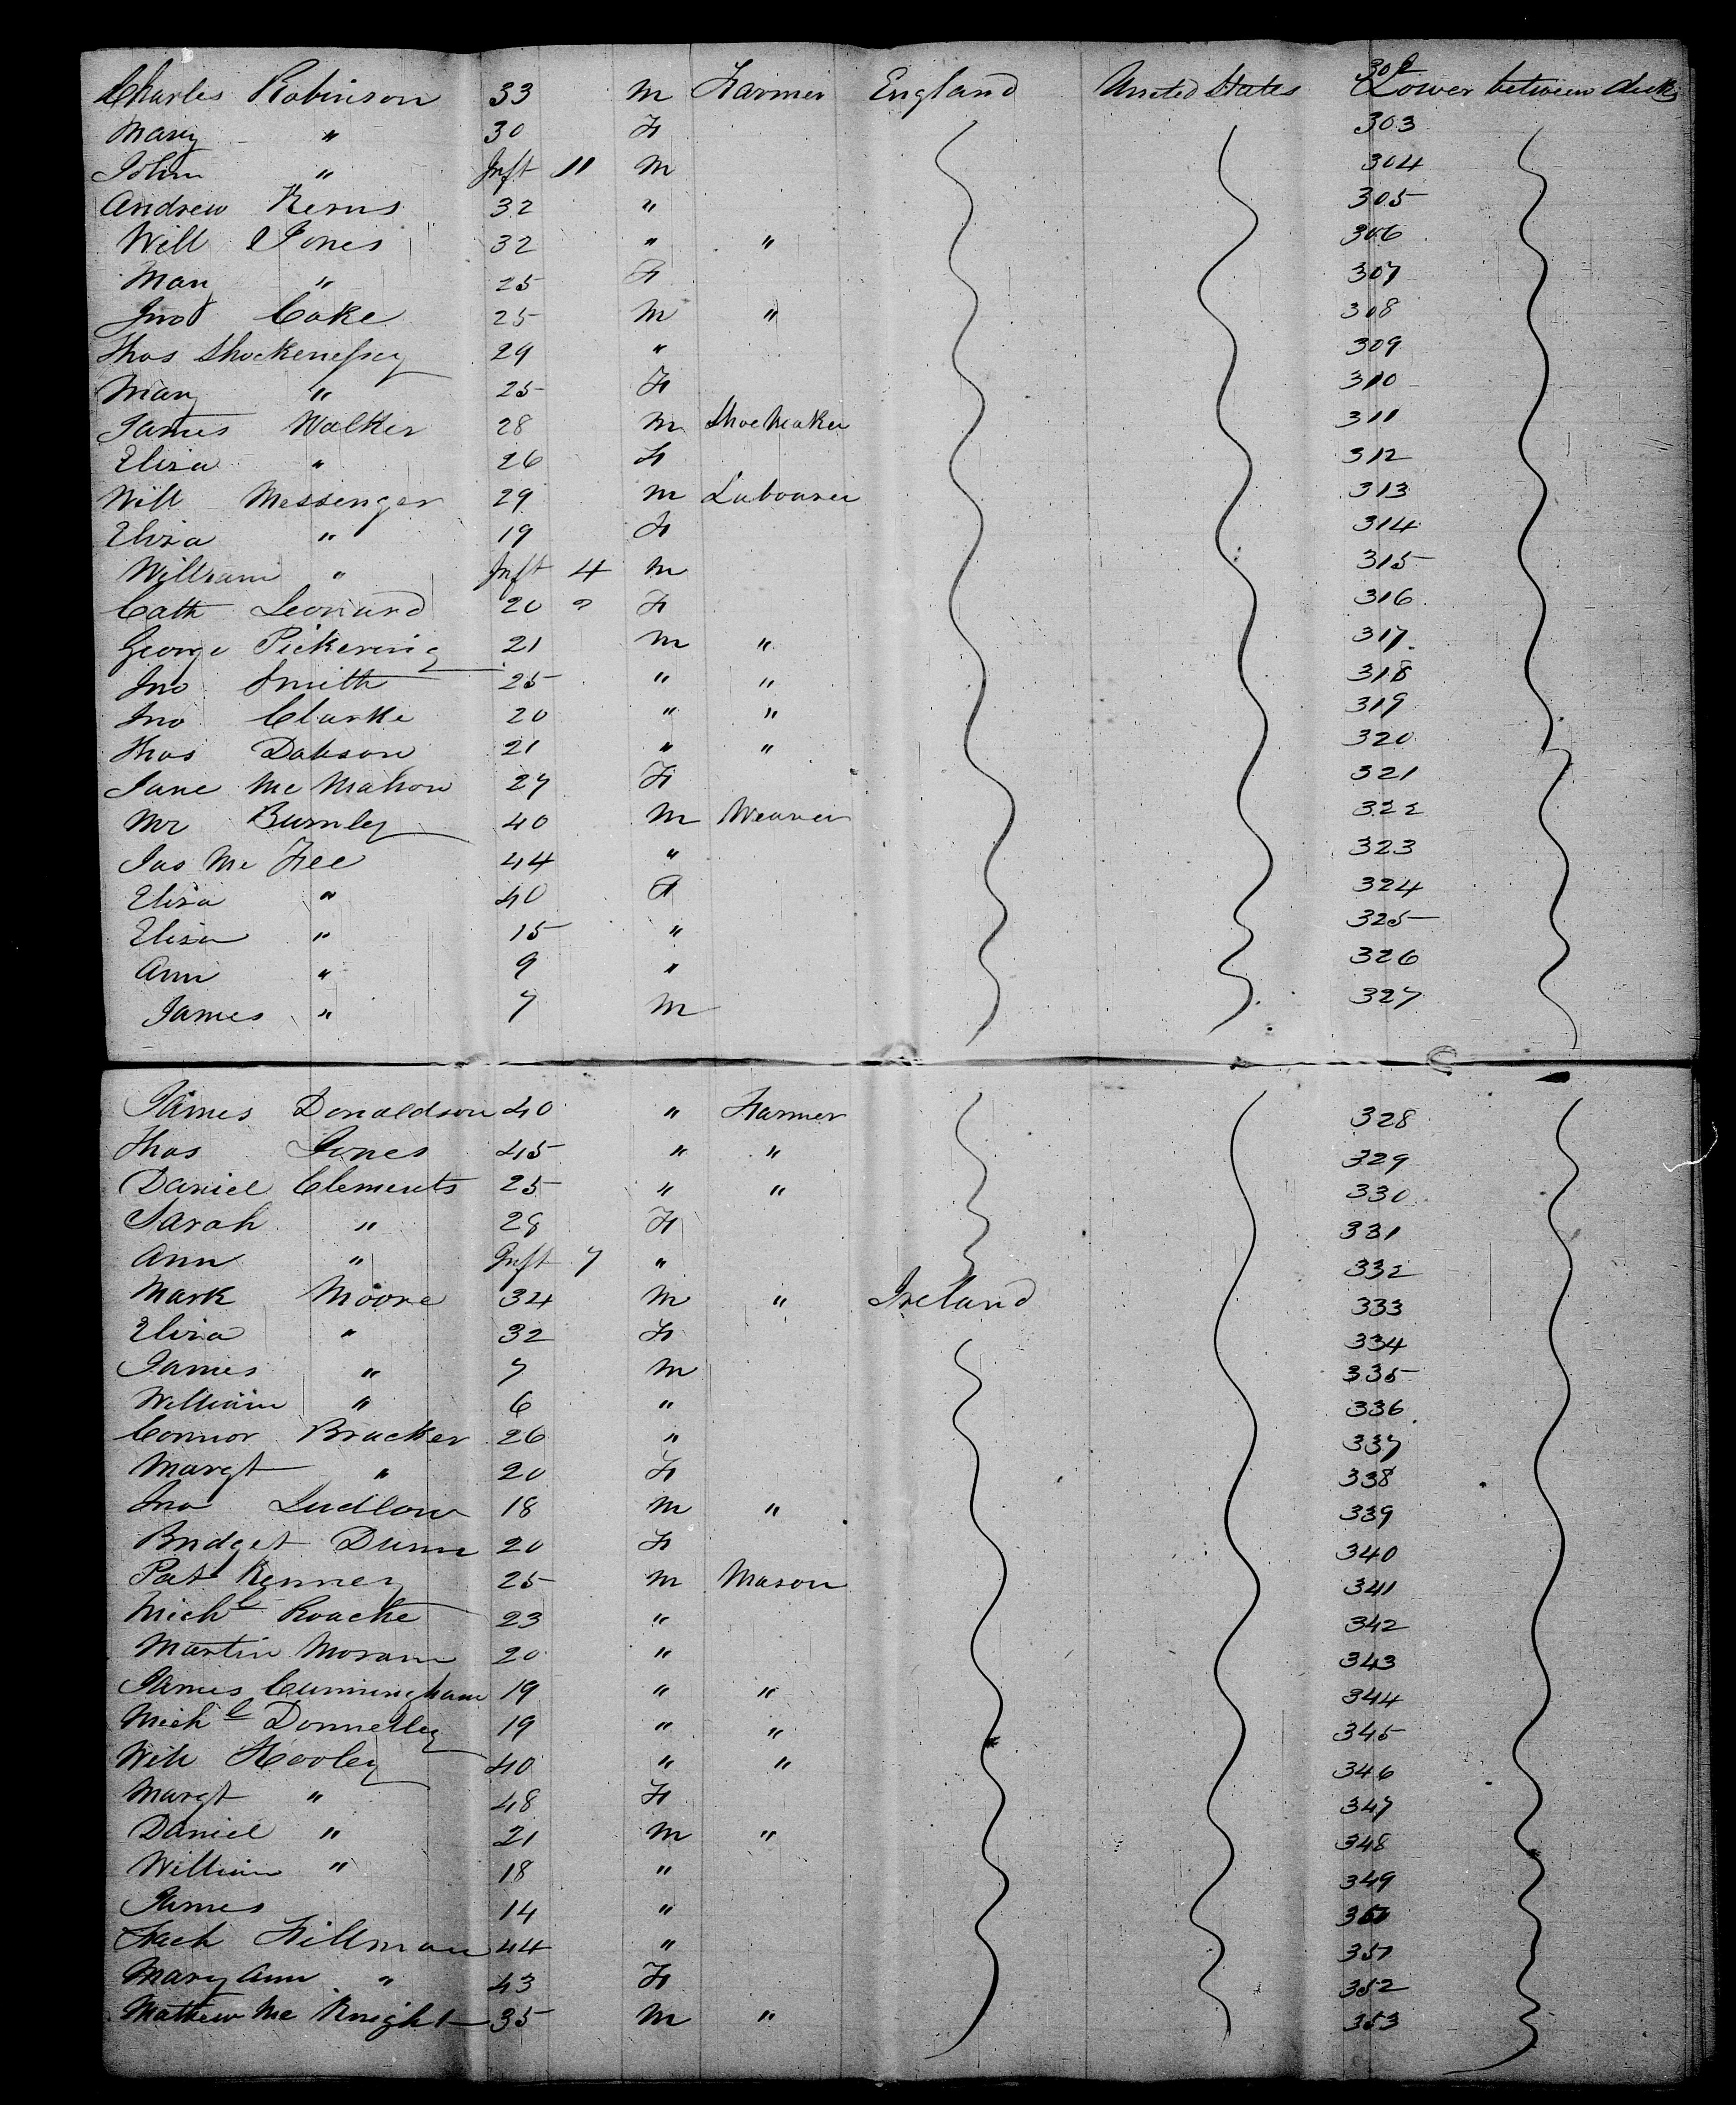 Charles Robinson 33 M Farmer England United States 302 Lower between decks
Mary " 30 F 303
John " Inft 11 M 304
Andrew Kerns 32 " 305
Will Jones 32 " " 306
Mary " 25 F 307
Jno Cake 25 M " 308
Thos Shockenessey 29 " 309
Mary " 25 F 310
James Walker 28 M Shoemaker 311
Eliza " 26 F 312
Will Messenger 29 M Labourer 313
Eliza " 19 F 314
William " Inft 4 M 315
Cath Leonard 20 F 316
George Pickering 21 M " 317
Jno Smith 25 " " 318
Jno Clarke 20 " " 319
Thos Dobson 21 " " 320
Jane McMahon 27 F 321
Mr Burnley 40 M Weaver 322
Jas McFee 44 " 323
Eliza " 40 F 324
Eliza " 15 " 325
Ann " 9 " 326
James " 7 M 327
James Donaldson 40 " Farmer 328
Thos Jones 45 " " 329
Daniel Clements 25 " " 330
Sarah " 28 F 331
Ann " Inft 7 " 332
Mark Moore 34 M " Ireland 333
Eliza " 32 F 334
James " 7 M 335
William " 6 " 336
Connor Bracker 26 " 337
Margt " 20 F 338
Jno Ludlow 18 M " 339
Bridget Dunn 20 F 340
Pat Kenney 25 M Mason 341
Michl Roache 23 " 342
Martin Moran 20 " 343
James Cunningham 19 " " 344
Michl Donnelley 19 " " 345
Will Hooley 40 " " 346
Margt " 48 F 347
Daniel " 21 M " 348
William " 18 " 349
James 14 " 350
Zach Fillman 44 " 351
Mary Ann " 43 F 352
Mathew McKnight 35 M " 353